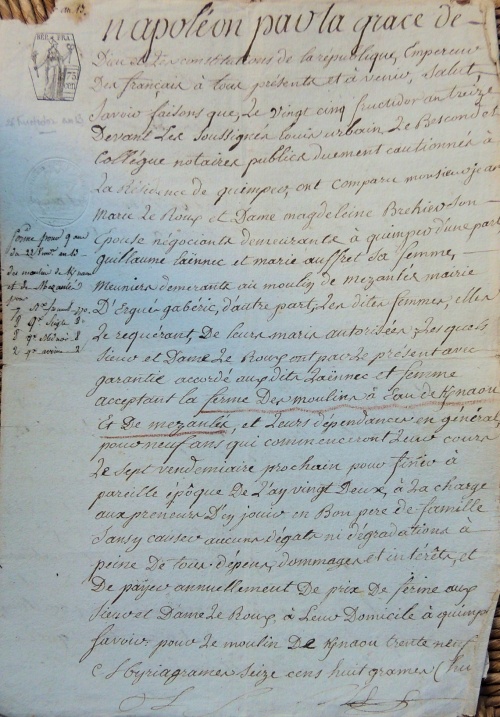 REP. FRA.
napoléon par la grace de
Dieu et Les constitutions de la république, Empereur
Des français à tous présents et à venir, Salut,
Savoir faisons que, Le vingt cinq fructidor an treize
Devant Les Soussignés Louis urbain Le Bescond et
Collégue notaires publics duement cautionnés à
La Résidence de quimper, ont comparu monsieur jean
marie Le Roux et Dame magdeleine Brehier son
Epouse négociants demeurants à quimper d'une part
guillaume Laënnec et marie auffret sa femme,
meuniers demeurants au moulin de mezanlez mairie
D'Ergué gabéric, d'autre part, Les dites femmes, elles
Le requérant, De leurs maris autorisées, Lesquels
Sieur et Dame Le Roux ont par Le présent avec
garantie accordé aux dits Laënnec et femme
acceptant La ferme Des moulins à Eau de Kynaou
Et De mezanlez, et Leurs dépendances en général
pour neuf ans qui commenceront Leur cours
Le Sept vendemiaire prochain pour finir à
pareille époque De L'an vingt Deux, à La charge
aux preneurs D'en jouir en Bon pere de famille
Sans y causer aucuns dégats ni dégradations à
peine De tous dépens, dommages et intérêts, et
De payer annuellement De prix De ferme aux
Sieur et Dame Le Roux, à Leur Domicile à quimper
Savoir pour Le moulin De Kynaou trente neuf
Myriagrames Seize cens huit grames
ferme pour 9 ans
du moulin de Kynaou
et de Mezanlez